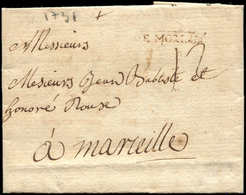 1731
Messieurs
Mesieurs Jean Babtiste et
honoré Rouse
à marseille